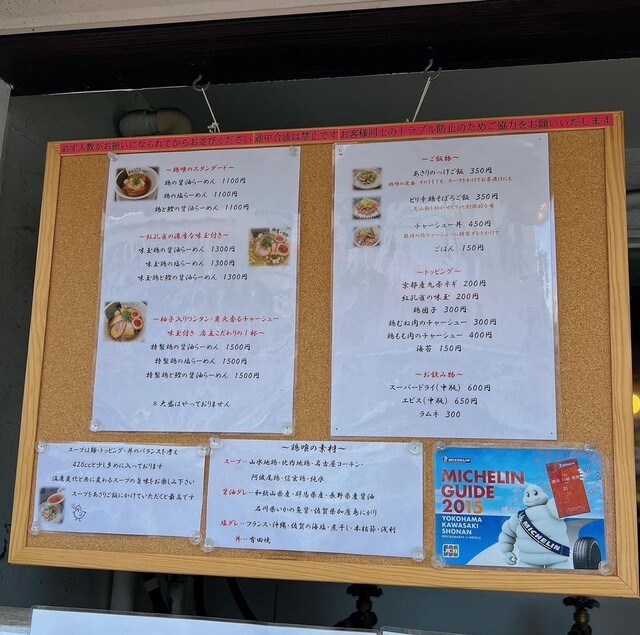 必ず人数がお揃いになられてからお並びください 途中合流は禁止です お客様同士のトラブル防止のためご協力をお願いいたします
～鶏喰のスタンダード～
鶏の醤油らーめん 1100円
鶏の塩らーめん 1100円
鶏と鰹の醤油らーめん 1100円
～紅孔雀の濃厚な味玉付き～
味玉鶏の醤油らーめん 1300円
味玉鶏の塩らーめん 1300円
味玉鶏と鰹の醤油らーめん 1300円
～柚子入りワンタン・炭火香るチャーシュー
味玉付き 店主こだわりの1杯～
特製鶏の醤油らーめん 1500円
特製鶏の塩らーめん 1500円
特製鶏と鰹の醤油らーめん 1500円
*大盛はやっておりません
～ご飯物～
あさりのっけご飯 350円
ピリ辛鶏そぼろご飯 350円
チャーシュー丼 450円
ごはん 150円
～トッピング～
京都産九条ネギ 200円
紅孔雀の味玉 200円
鶏団子 300円
鶏むね肉のチャーシュー 300円
鶏もも肉のチャーシュー 400円
海苔 150円
～お飲み物～
スーパードライ(中瓶) 600円
エビス(中瓶) 650円
ラムネ 300
スープは麺・トッピング・丼のバランスを考え
420ccと少し多めに入っております
温度変化と共に変わるスープの旨味をお楽しみ下さい
スープをあさりご飯にかけていただくと最高です
～鶏喰の素材～
スープ…山水地鶏・比内地鶏・名古屋コーチン・
阿波尾鶏・信玄鶏・純水
醤油ダレ…和歌山県産・群馬県産・長野県産醤油
石川県いかの魚醤・佐賀県加唐島にがり
塩ダレ…フランス・沖縄・佐賀の海塩・煮干し・本枯節・浅利
丼…有田焼
MICHELIN
MICHELIN
GUIDE
2015
YOKOHAMA
KAWASAKI
SHONAN
MICHELIN